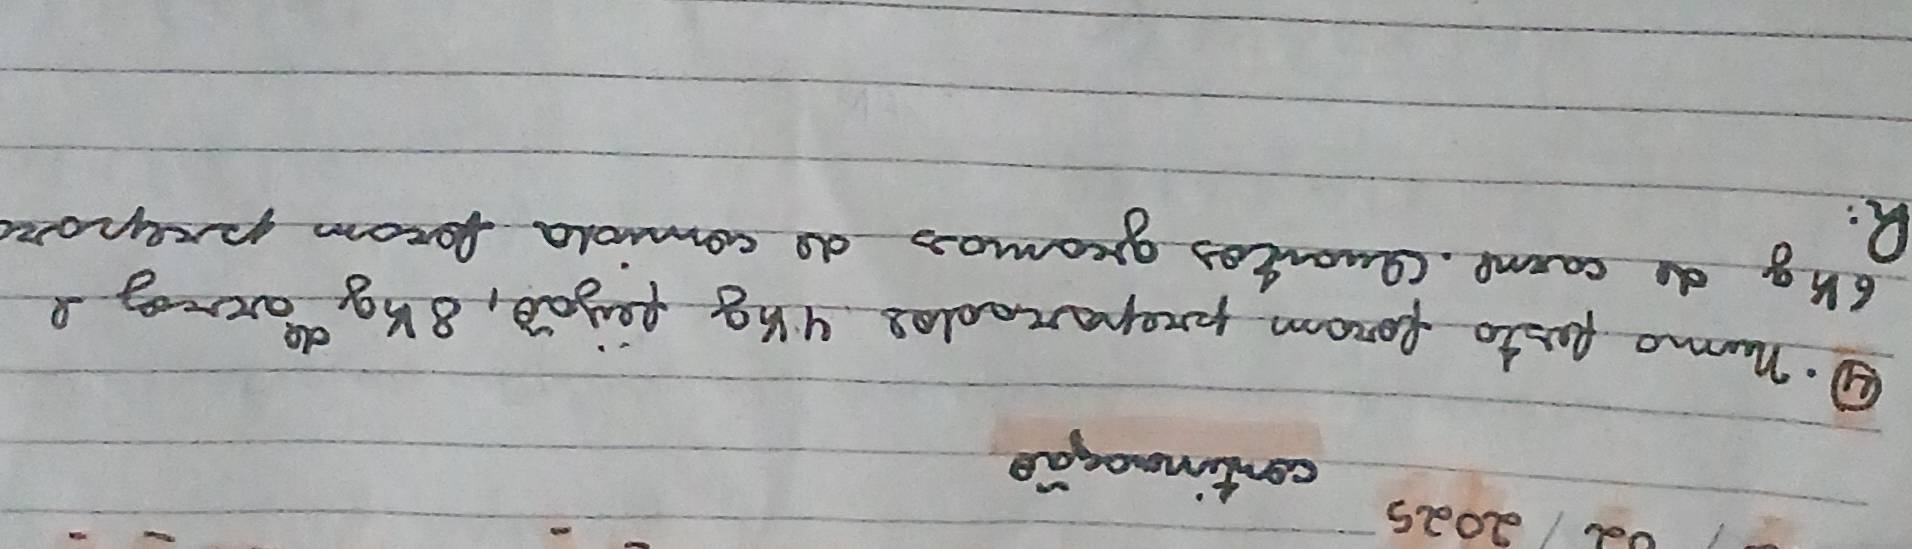 / 02 / 2025
continuação
④. Numa festa foram preparados 4Kg feijão, 8Kg de arroz e
6Kg de carne. Quantos gramas de comida foram
R: